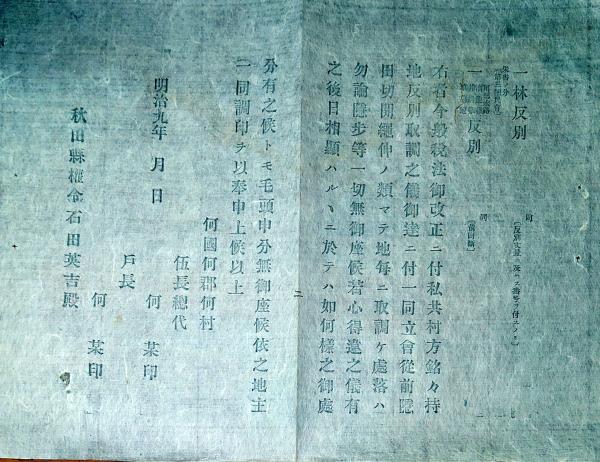 一林反別
一 反別
右者今般税法御改正ニ付私共村方銘々持
地反別取調之儀御達ニ付一同立會從前隠
田切開縄伸ノ類マテ地毎ニ取調ケ處落ハ
勿論隠歩等一切無御座候若心得違之儀有
之後日相顯ハルヽニ於テハ如何様之御處
分有之候トモ毛頭申分無御座候依之地主
一同調印ヲ以奉申上候以上
何國何郡何村
伍長總代
明治九年 月 日 何 某印
戸長
何 某印
秋田縣權令石田英吉殿
二